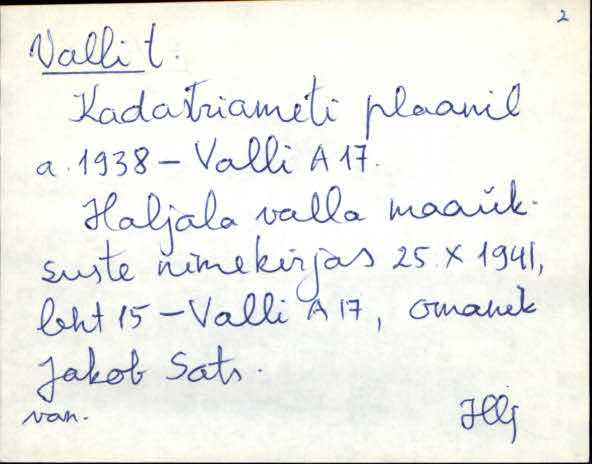 2
Valli t.
Kadastriameti plaanil
a. 1938 – Valli A 17.
Haljala valla maaük-
suste nimekirjas 25. X 1941,
leht 15 – Valli A 17, omanik
Jakob Sats.
van. Hlj